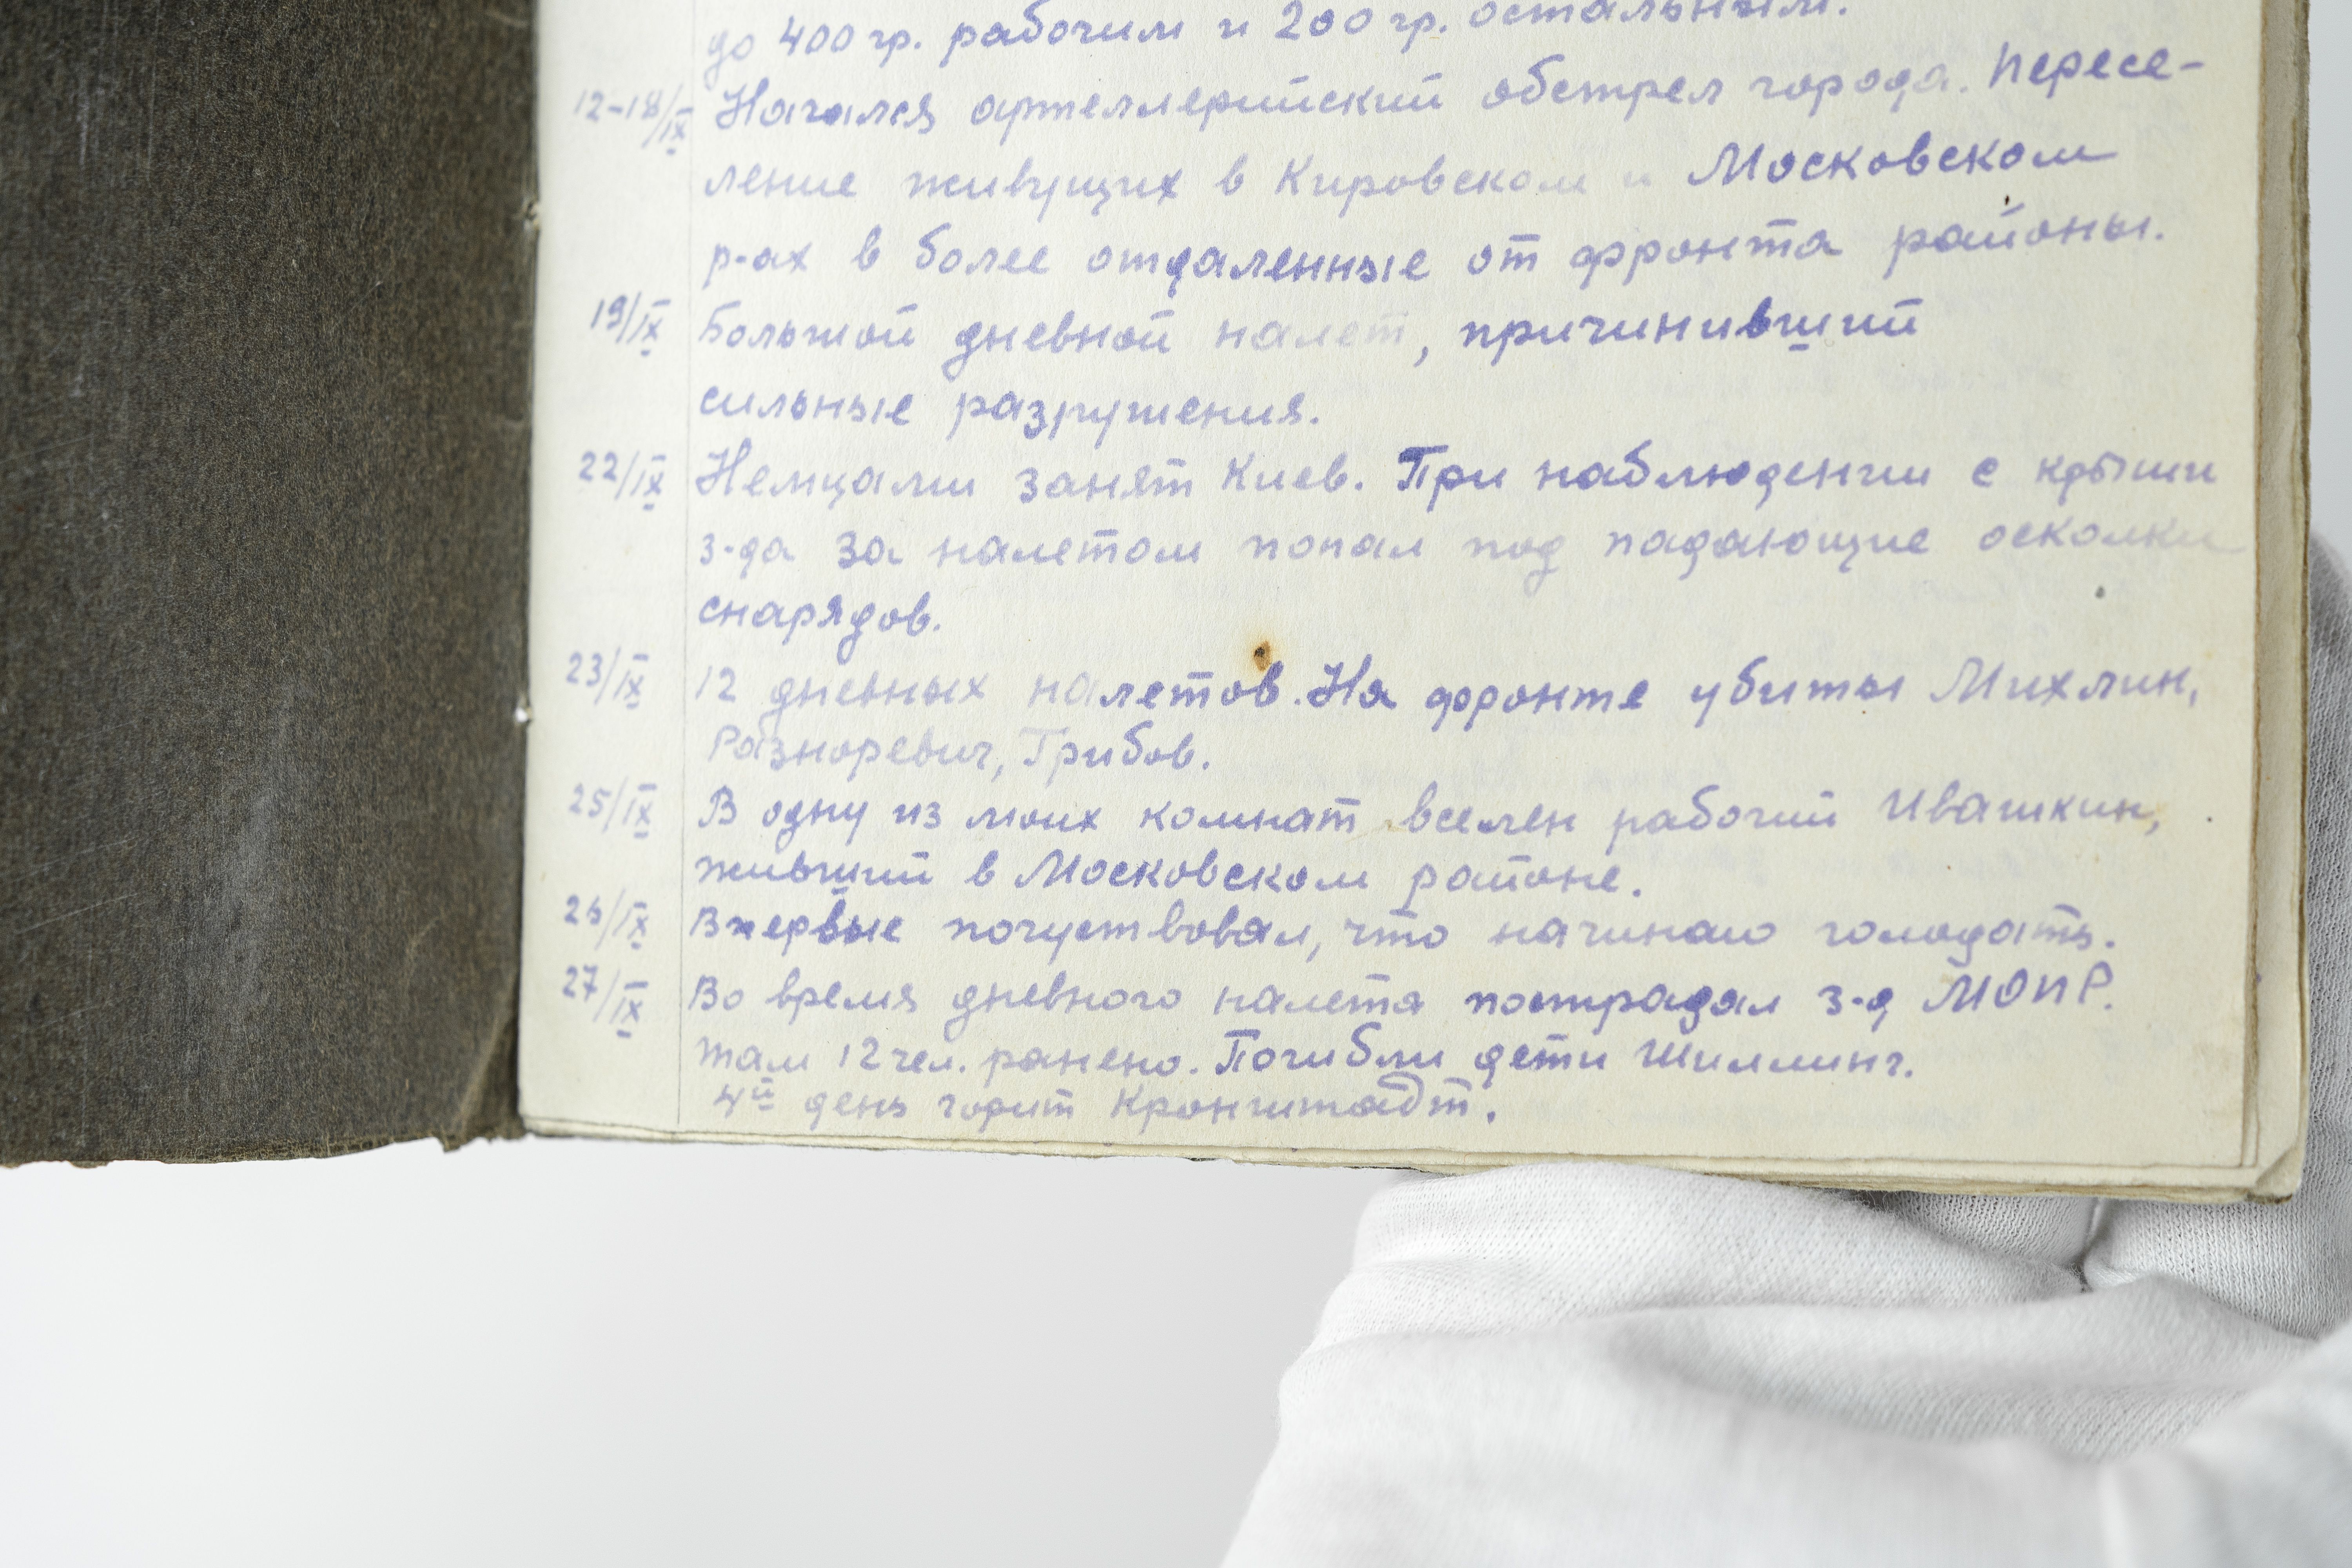 до 400 гр. рабочим и 200 гр. остальным.
12-18/IX Начался артеллерийский обстрел города. Пересе-
ление живущих в Кировском и Московском
р-ах в более отдаленные от фронта районы.
19/IX Большой дневной налет, причинивший
сильные разрушения.
22/IX Немцами занят Киев. При наблюдении с крыши
з-да за налетом попал под падающие осколки
снарядов.
23/IX 12 дневных налетов. На фронте убиты Михлин,
Разноревич, Грибов.
25/IX В одну из моих комнат вселен рабочий Ивашкин,
живший в Московском районе.
26/IX Впервые почуствовал, что начинаю голодать.
27/IX Во время дневного налета пострадал з-д МОПР.
там 12 чел. ранено. Погибли дети Шиллинг.
4й день горит Кронштадт.